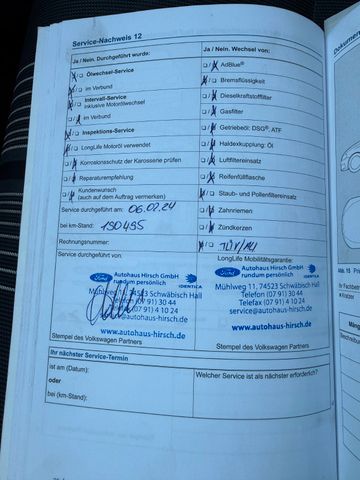 Service-Nachweis 12
Ja / Nein. Durchgeführt wurde:
Ölwechsel-Service
im Verbund
Intervall-Service
inklusive Motorölwechsel
im Verbund
Inspektions-Service
LongLife Motoröl verwendet
Korrosionsschutz der Karosserie prüfen
Reparaturempfehlung
Kundenwunsch
(auch auf dem Auftrag vermerken)
Service durchgeführt am: 06.02.24
bei km-Stand: 190455
Rechnungsnummer:
Service durchgeführt von:
Ja / Nein. Wechsel von:
AdBlue®
Bremsflüssigkeit
Dieselkraftstofffilter
Gasfilter
Getriebeöl: DSG®, ATF
Haldexkupplung: Öl
Luftfiltereinsatz
Reifenfüllflasche
Staub- und Pollenfiltereinsatz
Zahnriemen
Zündkerzen
TÜV/AU
LongLife Mobilitätsgarantie:
Ford
Autohaus Hirsch GmbH
rundum persönlich
IDENTICA
Mühlweg 11, 74523 Schwäbisch Hall
Telefon (07 91) 30 44
(07 91) 4 10 24
autohaus-hirsch.de
www.autohaus-hirsch.de
Stempel des Volkswagen Partners
Ford
Autohaus Hirsch GmbH
rundum persönlich
IDENTICA
Mühlweg 11, 74523 Schwäbisch Hall
Telefon (07 91) 30 44
Telefax (07 91) 4 10 24
service@autohaus-hirsch.de
www.autohaus-hirsch.de
Stempel des Volkswagen Partners
Ihr nächster Service-Termin
ist am (Datum):
oder
bei (km-Stand):
Welcher Service ist als nächster erforderlich?